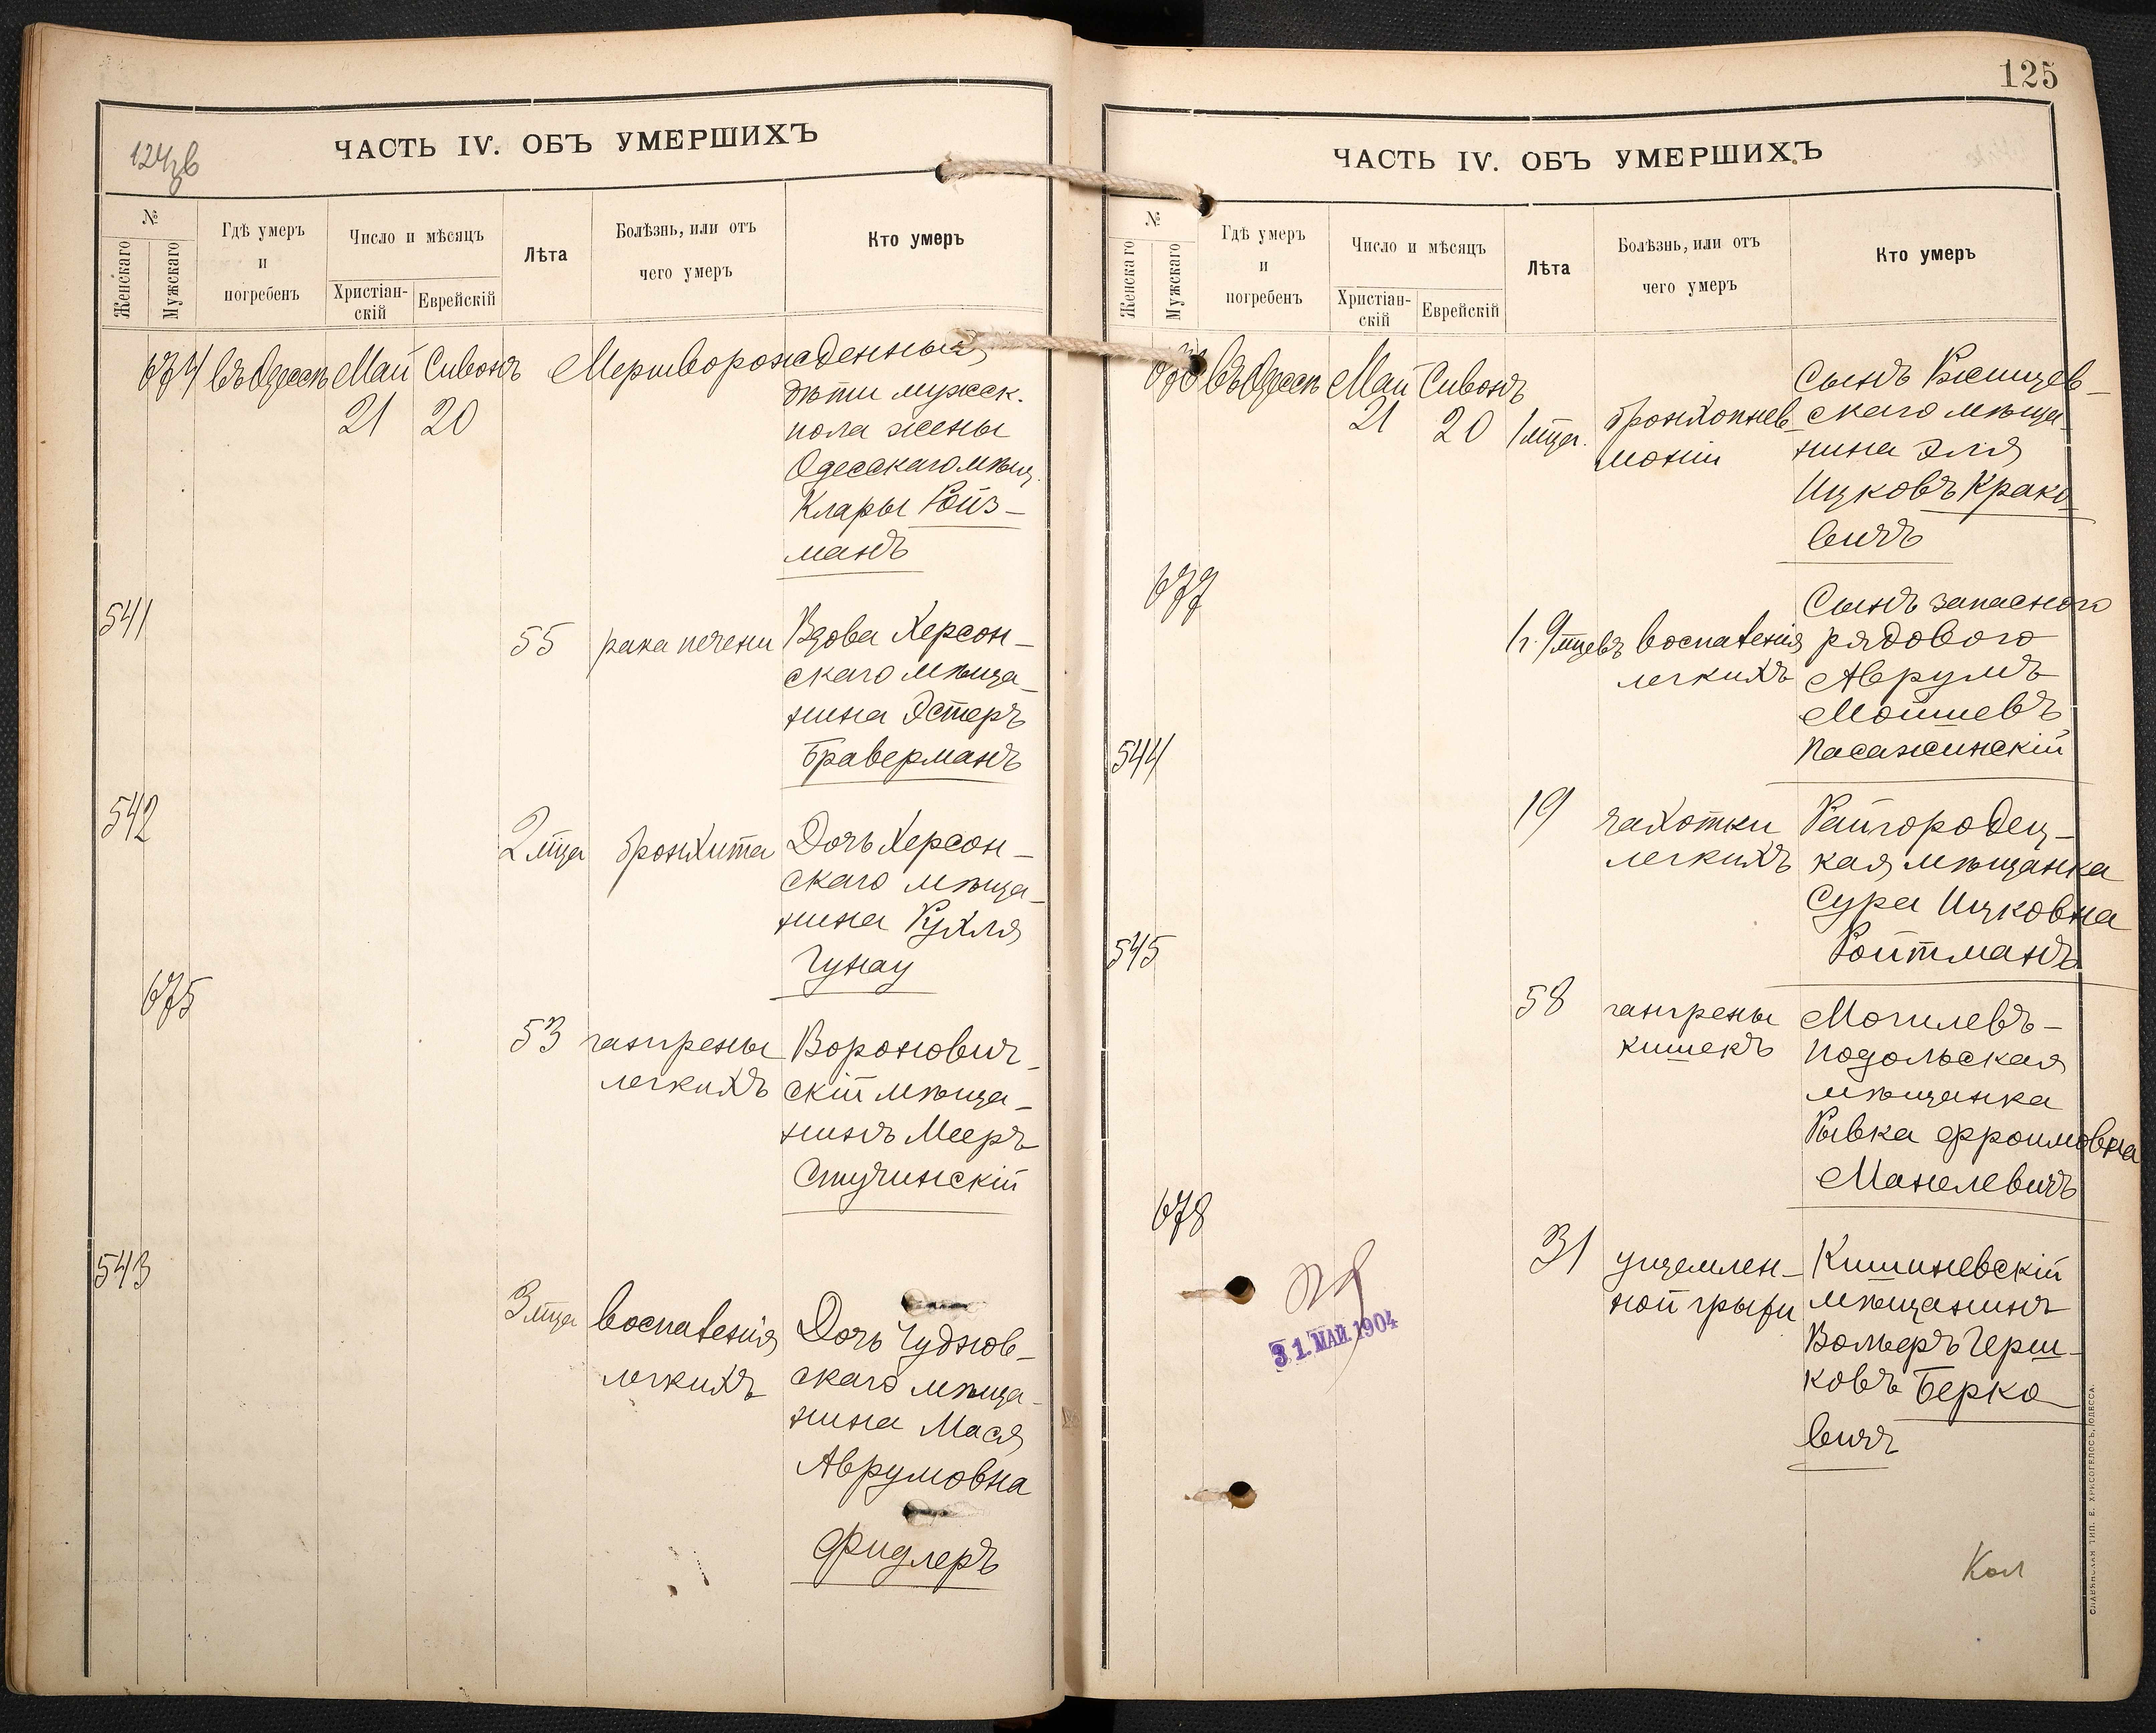 124 об
ЧАСТЬ IV. ОБЪ УМЕРШИХЪ
№
Женскаго
Мужскаго
Гдѣ умеръ
и
погребенъ
Число и мѣсяцъ
Христіан-
скій
Еврейскій
Лѣта
Болѣзнь, или отъ
чего умеръ
Кто умеръ
674 въ Одессѣ Май Сивонъ Мертворожденный
21 20
дѣти мужеск.
пола жены
Одесскаго мѣщ.
Клары Ройз-
манъ
541
55 рака печени Вдова Херсон-
скаго мѣща-
нина Эстеръ
Браверманъ
542
2 мца бронхита Дочь Херсон-
скаго мѣща-
нина Рухля
Гунау
675
53 гангрены Воронович-
легкихъ скій мѣща-
нинъ Мееръ
Стучинскій
543
3 мца воспаленія Дочь Чуднов-
легкихъ скаго мѣща-
нина Мася
Аврумовна
Фидлеръ
125
ЧАСТЬ IV. ОБЪ УМЕРШИХЪ
№
Женскаго
Мужскаго
Гдѣ умеръ
и
погребенъ
Число и мѣсяцъ
Христіан-
скій
Еврейскій
Лѣта
Болѣзнь, или отъ
чего умеръ
Кто умеръ
676 въ Одессѣ Май Сивонъ
21 20 1 мца. бронхопнев-
моніи
Сынъ
скаго мѣща-
нина Эля
Ицковъ Крако-
вичъ
677
1 г. 9 мцевъ воспаленія
легкихъ
Сынъ запаснаго
рядового
Аврумъ
Мошиевъ
Пасажинскій
544
19 чахотки Райгородец-
легкихъ кая мѣщанка
Сура Ицковна
Ройтманъ
545
58 гангрены Могилевъ-
кишекъ Подольская
мѣщанка
Рывка Эфроимовна
Манелевичъ
678
31 ущемлен- Кишиневскій
ной грыжи мѣщанинъ
Вольфъ Герш-
ковъ Берко-
вичъ
31. МАЙ. 1904
Кол
СЛАВЯНСКАЯ ТИП. Е. ХРИСОГЕЛОСЪ, ОДЕССА.